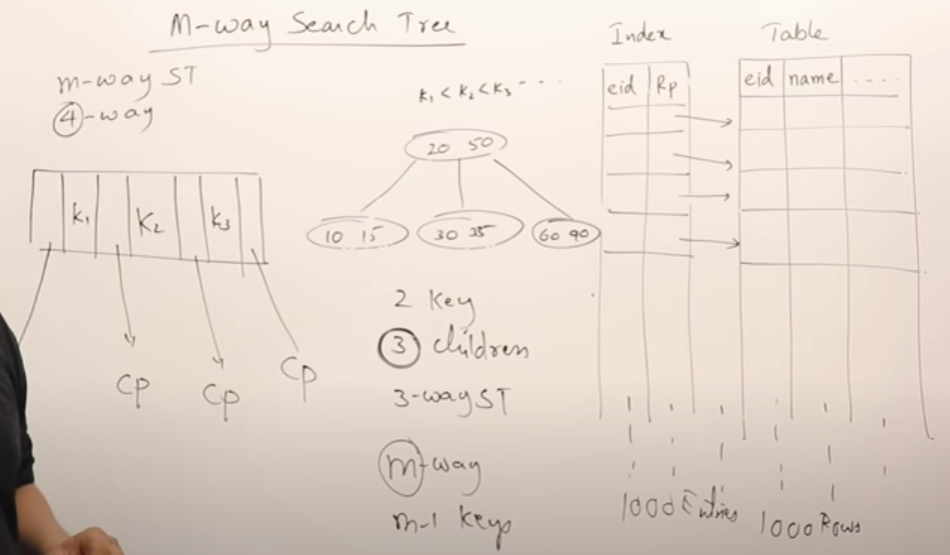 M-way Search Tree
m-way ST
4-way
K₁ K₂ K₃
CP CP CP
K₁ < K₂ < K₃ - - - .
20 50
10 15
30 35
60 90
2 Key
3 children
3-way ST
m-way
m-1 keys
Index
eid Rp
1000 Entries
Table
eid name ....
1000 Rows